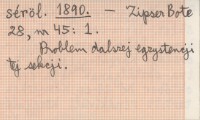 séröl. 1890. — Zipser Bote
28, nr 45: 1.
Problem dalszej egzystencji
tej sekcji.